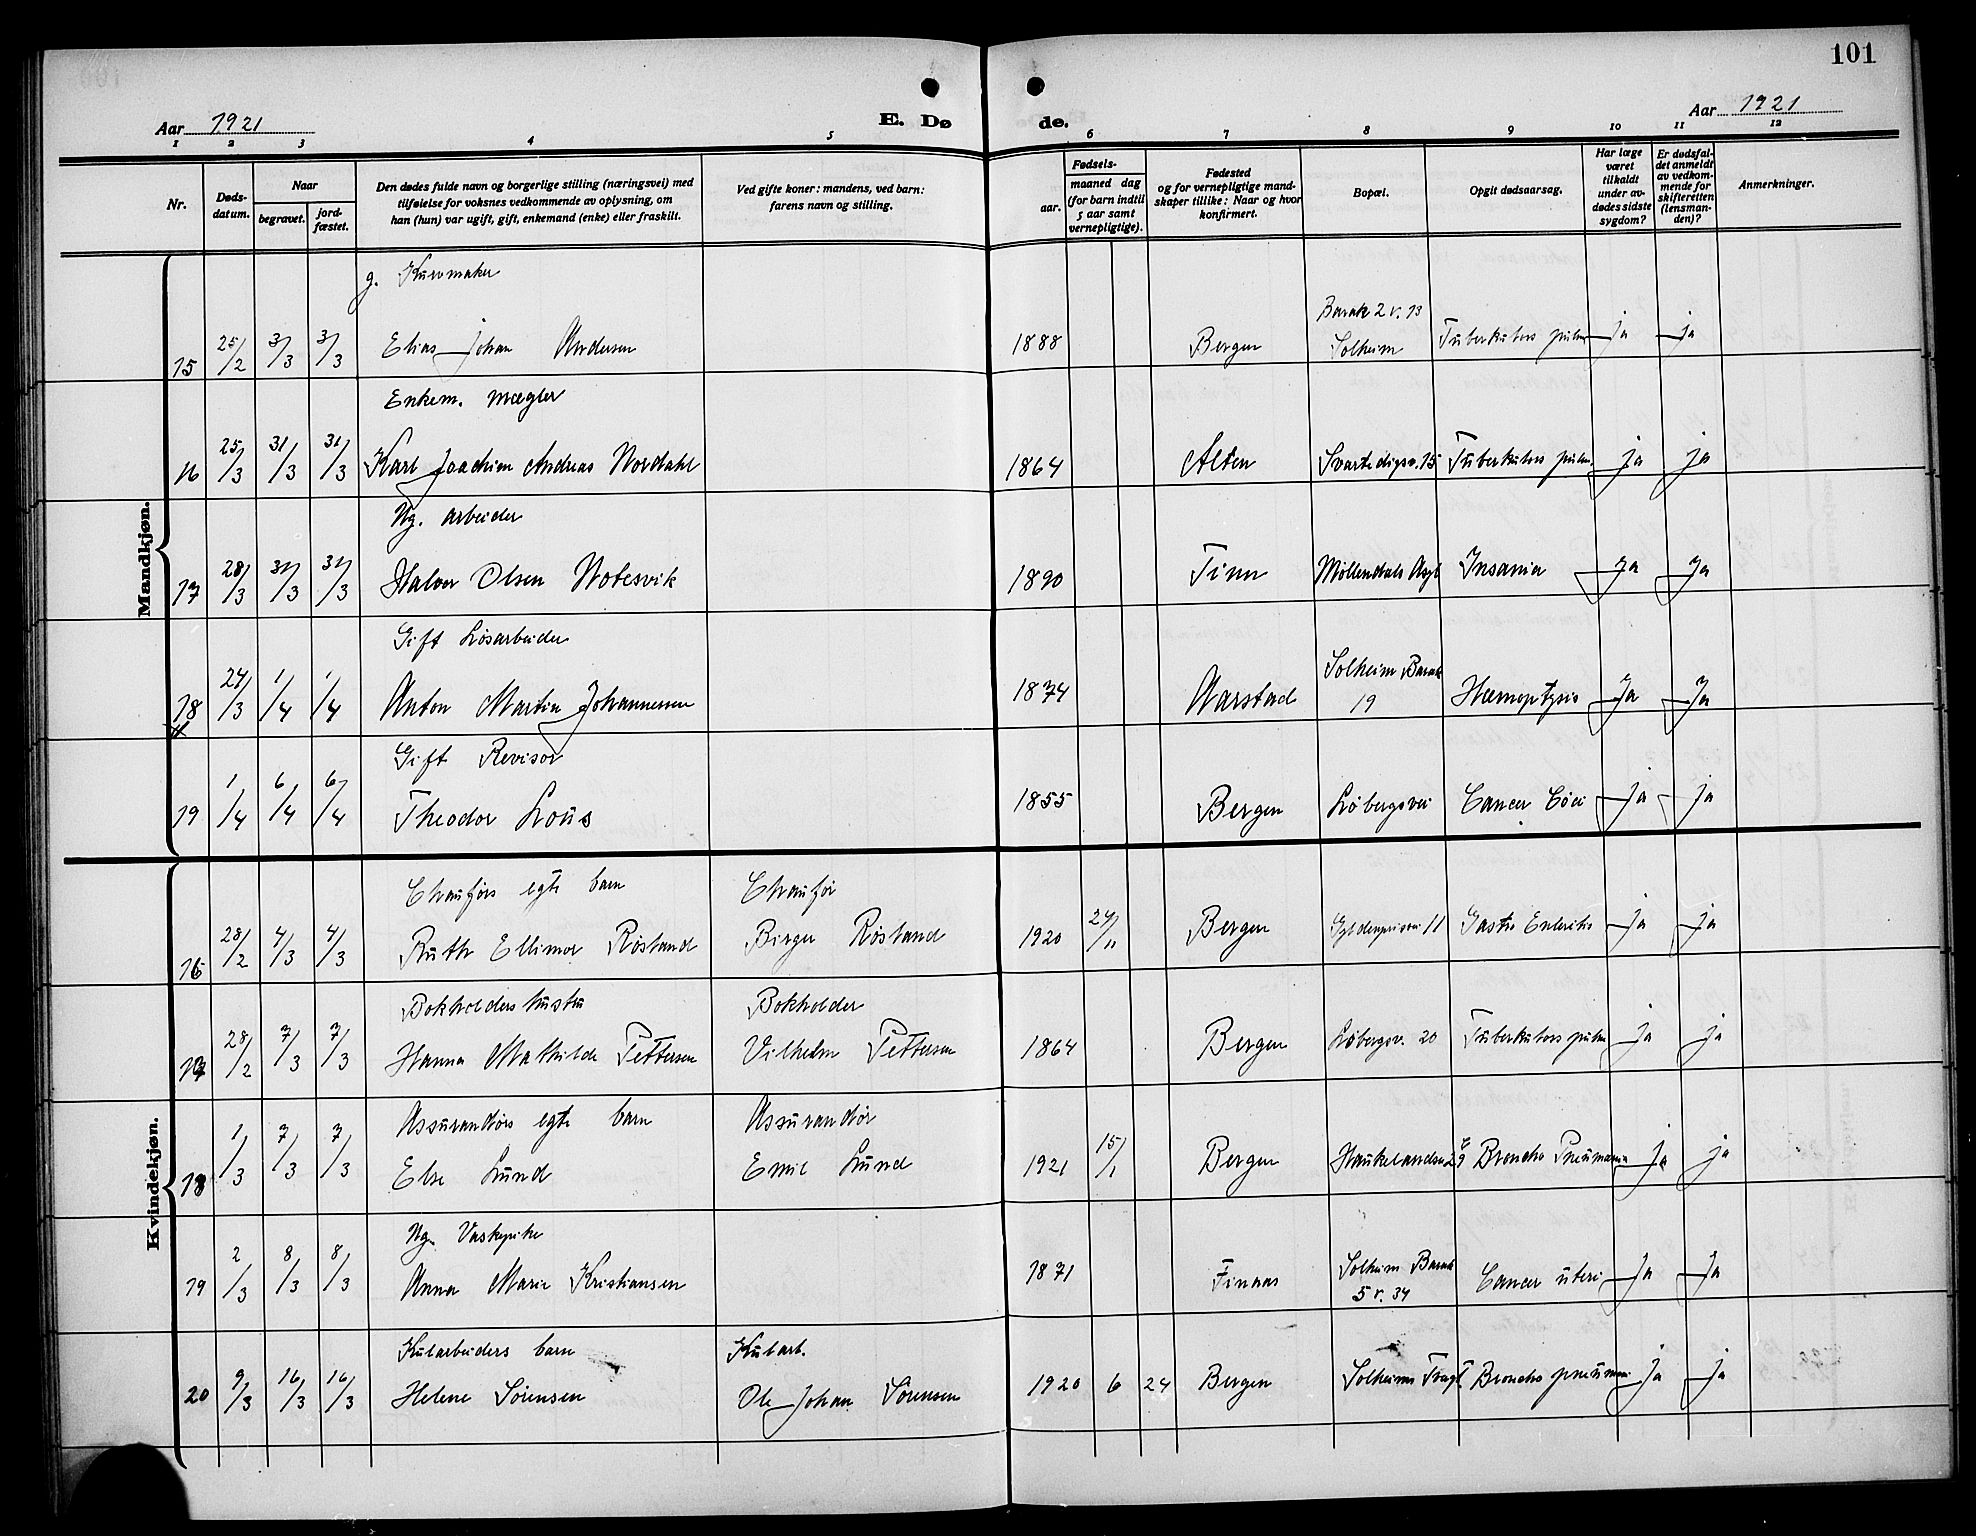 101
Aar 1921
E. Dø
de.
Aar 1921
1 2 3 4 5 6 7 8 9 10 11 12
Nr.
Døds-
datum.
Naar
begravet.
jord-
fæstet.
Den dødes fulde navn og borgerlige stilling (næringsvei) med
tilføielse for voksnes vedkommende av oplysning, om
han (hun) var ugift, gift, enkemand (enke) eller fraskilt.
Ved gifte koner: mandens, ved barn:
farens navn og stilling.
Fødsels-
aar.
maaned dag
(for barn indtil
5 aar samt
vernepligtige).
Fødested
og for vernepligtige mand-
skaper tillike: Naar og hvor
konfirmert.
Bopæl.
Opgit dødsaarsag.
Har læge
været
tilkaldt
under av-
dødes sidste
sygdom?
Er dødsfal-
det anmeldt
av vedkom-
mende for
skifteretten
(lensman-
den)?
Anmerkninger.
Mandkjøn.
g. Kurvmaker
Barak 2 v. 13
15 25/2 3/3 3/3 Elias Johan Andersen 1888 Bergen Solheim Tuberkulos pulm ja ja
Enkem. mægler
16 25/3 31/3 31/3 Karl Joachim Andreas Nordahl 1864 Alten Svartedigsv. 15 Tuberkulos pulm. ja ja
Ug. arbeider
17 28/3 31/3 31/3 Halvor Olsen 1890 Tinn Møllendals Asyl Insania Ja Ja
Gift Løsarbeider
Solheim Barak
18 24/3 1/4 1/4 Anton Martin Johannessen 1874 Aarstad 19 Hæmoptysis Ja Ja
Gift Revisor
19 1/4 6/4 6/4 Theodor Lous 1855 Bergen Løbergsvei Cancer ja ja
Kvindekjøn.
Chauførs egte barn Chaufør
16 28/2 4/3 4/3 Ruth Ellimor Røstand Birger Røstand 1920 24/11 Bergen 11 Gastro Enteritis ja ja
Bokholders hustru Bokholder
17 28/2 7/3 7/3 Hanna Mathilde Pettersen Vilhelm Pettersen 1864 Bergen Løbergsv. 20 Tuberkulos pulm ja ja
Assurandørs egte barn Assurandør
18 1/3 7/3 7/3 Else Lund Emil Lund 1921 15/1 Bergen Haukelandsv 29 Broncho Pneumonia ja ja
Ug. Vaskepike
Solheim Barak
19 2/3 8/3 8/3 Anna Marie Kristiansen 1871 Finnaas 5 v. 34 Cancer uteri Ja Ja
Kularbeiders barn Kularb.
20 9/3 16/3 16/3 Helene Sørensen Ole Johan Sørensen 1920 6 24 Bergen Solheims Broncho pneumoni ja ja